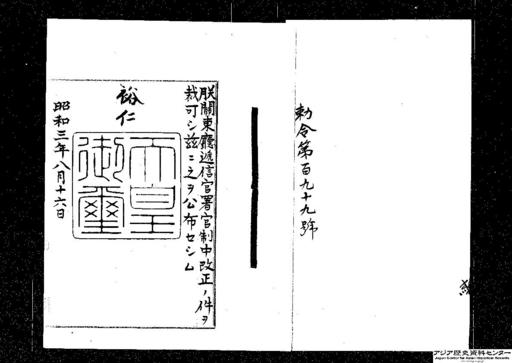 勅令第百九十九號
朕關東廳遞信官署官制中改正ノ件ヲ
裁可シ茲ニ之ヲ公布セシム
裕仁
天皇
御璽
昭和三年八月十六日
アジア歴史資料センター
Japan Center for Asian Historical Records